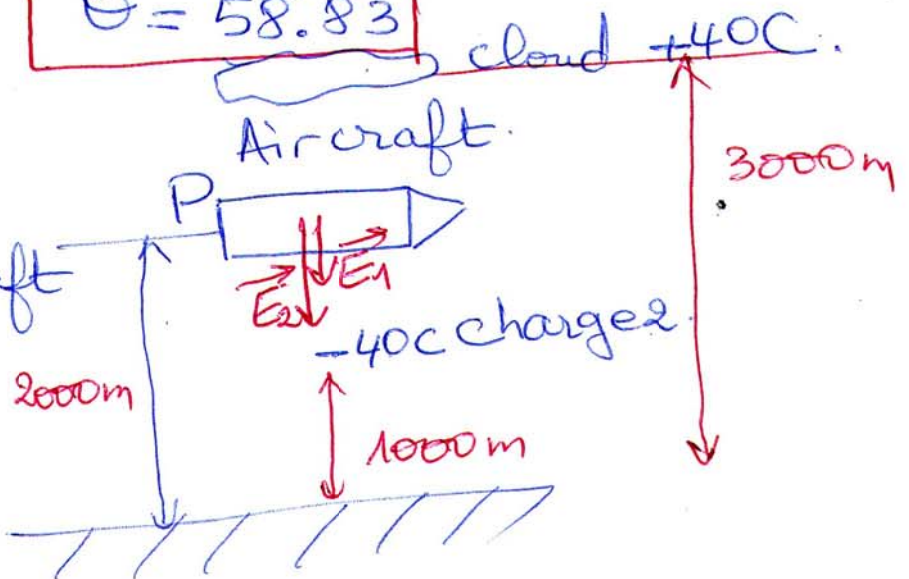 θ = 58.83
cloud +40C.
Aircraft.
3000m
P
ft
E₂ E₁
-40C charge2
2000m
1000m